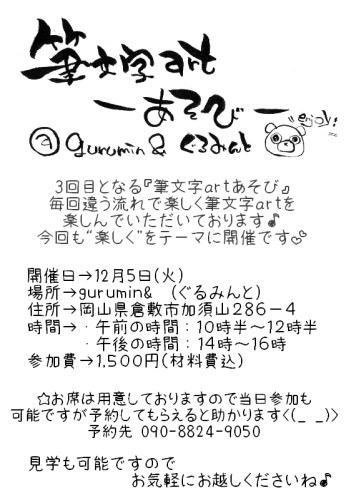 筆文字art
ーあそびー
"enjoy!
@ gurumin& ぐるみんと
3回目となる『筆文字artあそび』
毎回違う流れで楽しく筆文字artを
楽しんでいただいております♪
今回も“楽しく”をテーマに開催です
開催日→12月5日(火)
場所→gurumin& (ぐるみんと)
住所→岡山県倉敷市加須山286-4
時間→・午前の時間:10時半~12時半
・午後の時間:14時~16時
参加費→1,500円(材料費込)
☆お席は用意しておりますので当日参加も
可能ですが予約してもらえると助かります<(_ _)>
予約先 090-8824-9050
見学も可能ですので
お気軽にお越しくださいね♪